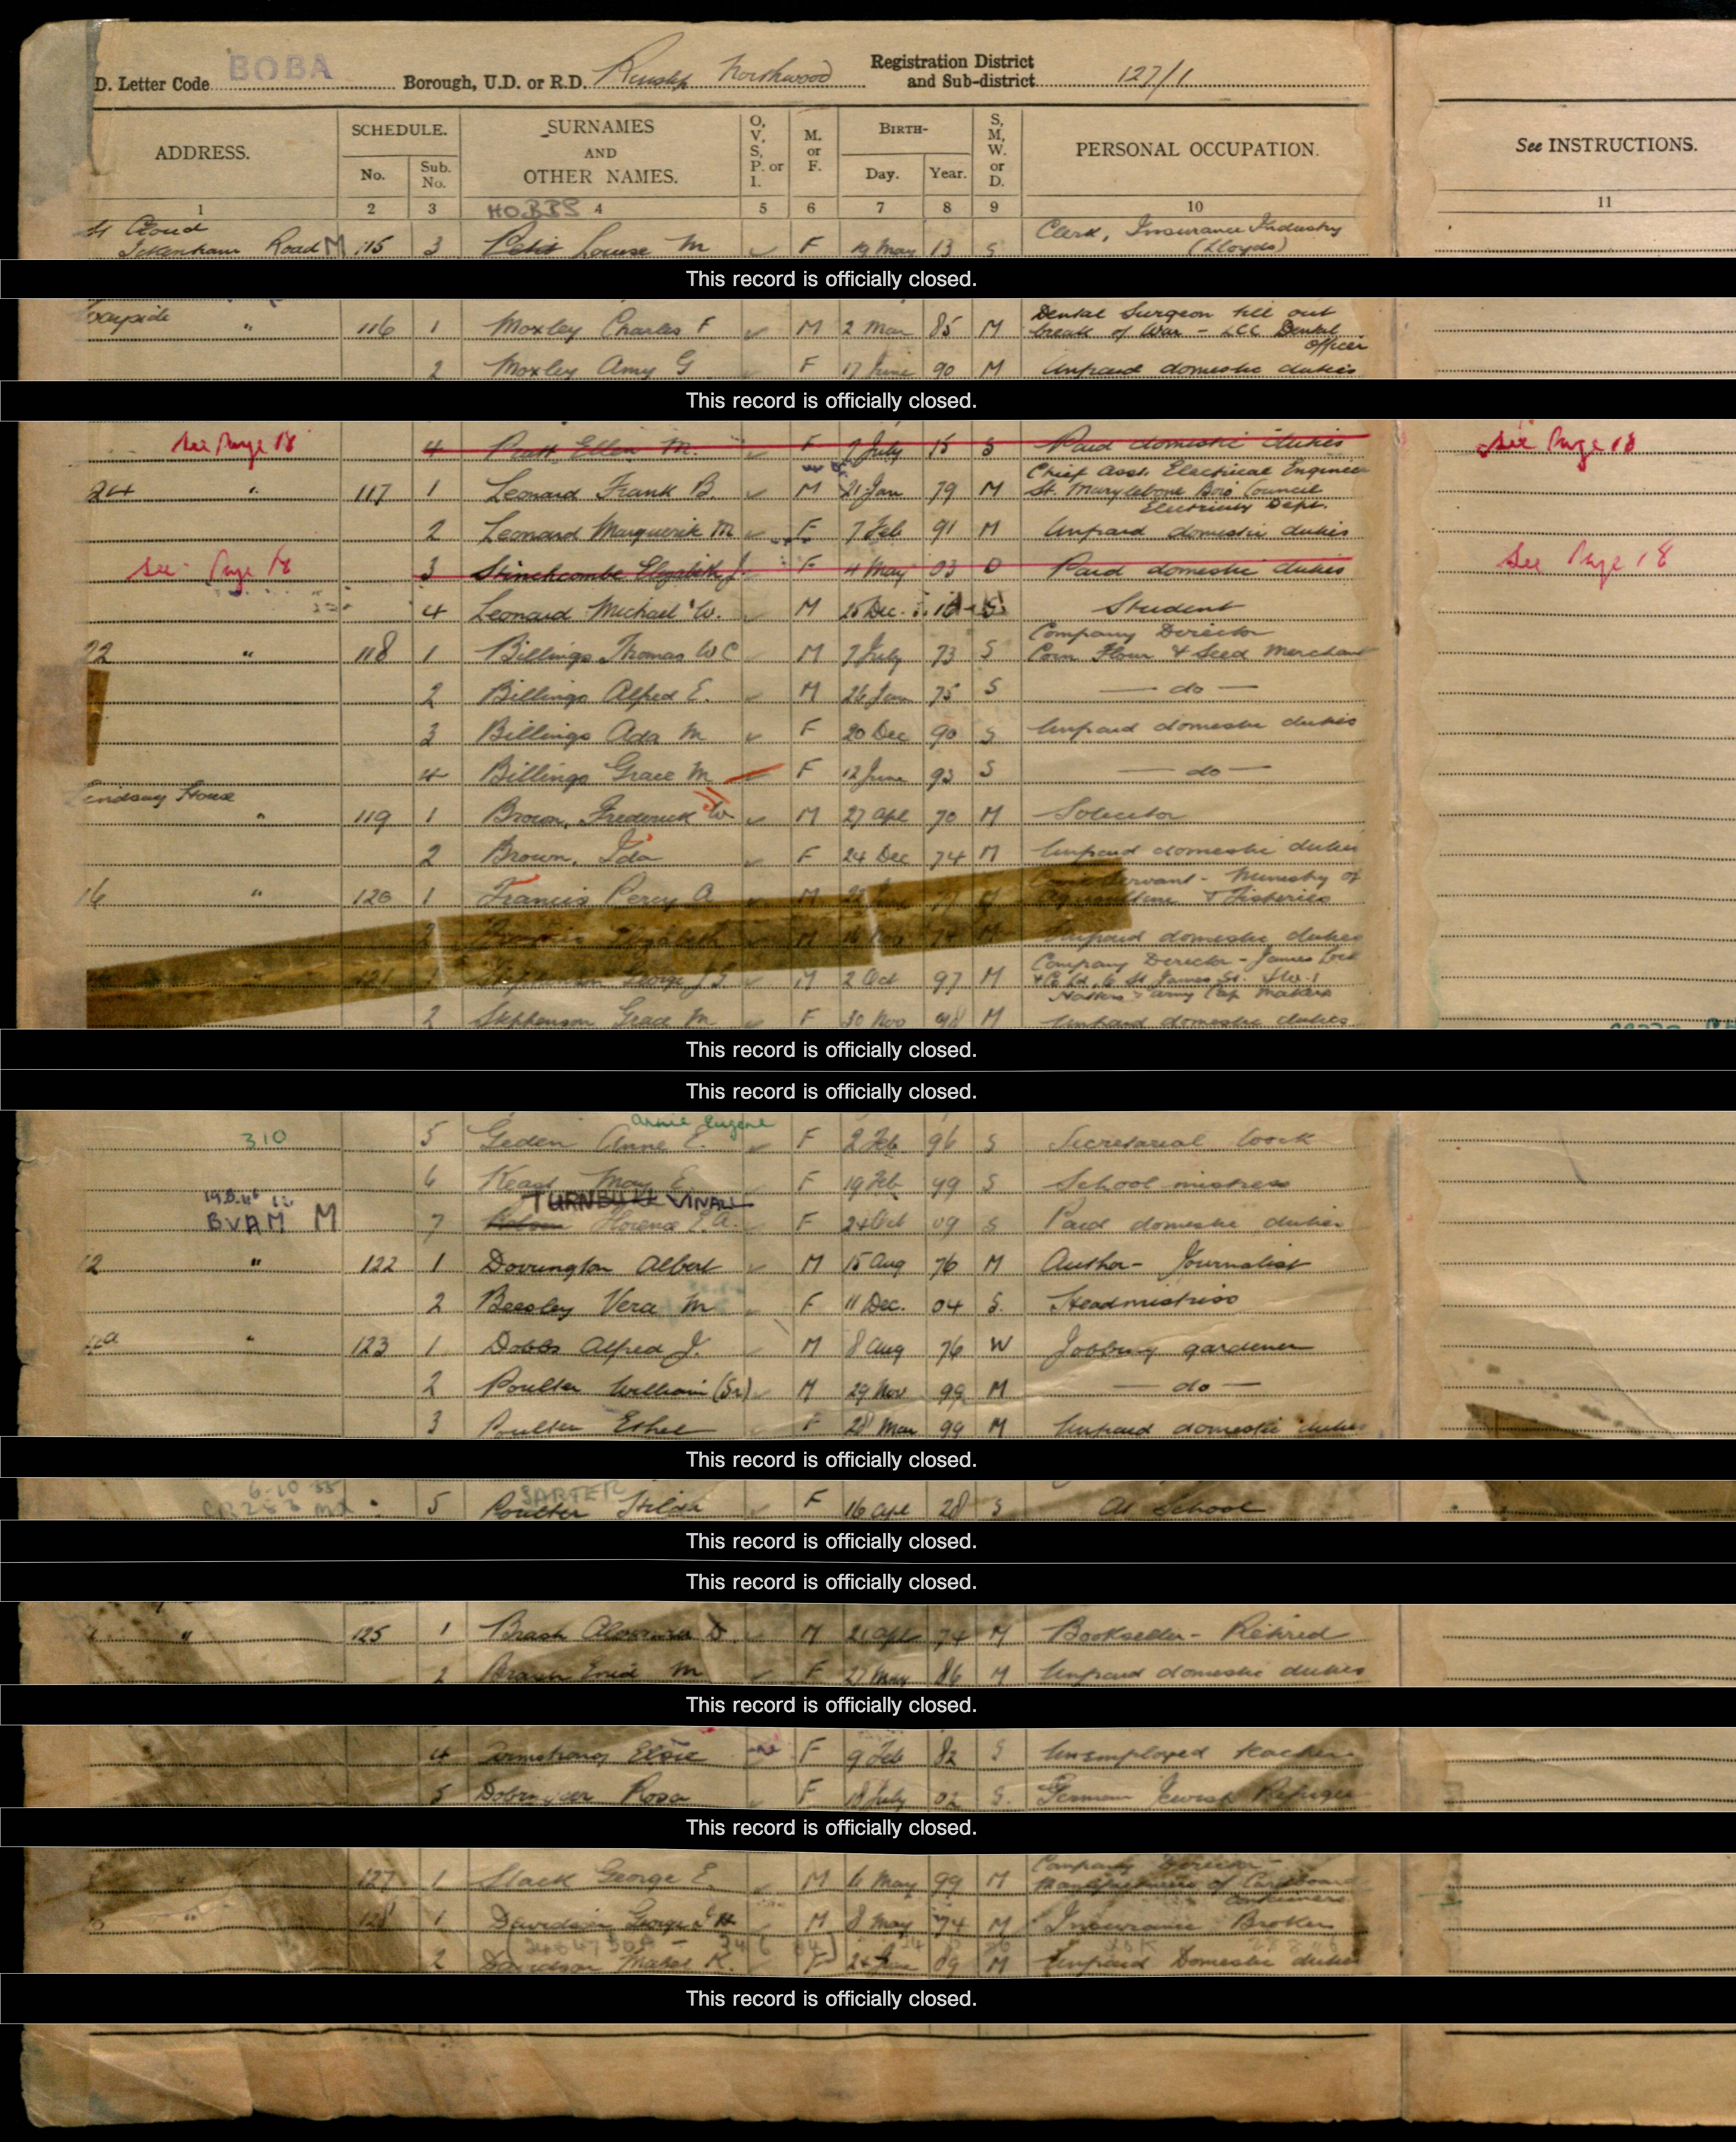 D. Letter Code BOBA Borough, U.D. or R.D. Ruislip Northwood Registration District and Sub-district 127/1
ADDRESS. SCHEDULE. No. Sub. No. SURNAMES AND OTHER NAMES. O, V, S, P. or I. M. or F. BIRTH- Day. Year. S, M, W. or D. PERSONAL OCCUPATION. See INSTRUCTIONS.
1 2 3 4 5 6 7 8 9 10 11
HOBBS
St Cloud Clerk, Insurance Industry
Ickenham Road M 115 3 Petit Louise M F 19 May 13 S (Lloyds)
This record is officially closed.
Wayside " 116 1 Moxley Charles F M 2 Mar 85 M Dental Surgeon till out
break of War - LCC Dental
Officer
2 Moxley Amy G F 17 June 90 M Unpaid domestic duties
This record is officially closed.
See Page 18 4 Pratt Ellen M. F 7 July 15 S Paid domestic duties See Page 18
24 " 117 1 Leonard Frank B. M 21 Jan 79 M Chief Asst. Electrical Engineer
St. Marylebone Boro' Council
Electricity Dept.
2 Leonard Marguerite M F 7 Feb 91 M Unpaid domestic duties
See Page 18 3 Stinchcombe Elizabeth J. F 4 May 03 D Paid domestic duties See Page 18
4 Leonard Michael W. M 25 Dec S Student
22 " 118 1 Billings Thomas W C M 7 July 73 S Company Director
Corn Flour & Seed Merchant
2 Billings Alfred E. M 26 Jan 75 S — do —
3 Billings Ada M F 20 Dec 90 S Unpaid domestic duties
4 Billings Grace M F 12 June 93 S — do —
Lindsay House
" 119 1 Brown, Frederick W M 27 Apl 70 M Solicitor
2 Brown, Ida F 24 Dec 74 M Unpaid domestic duties
16 " 120 1 Francis Percy A M Servant - Ministry of
Agriculture & Fisheries
Unpaid domestic duties
121 1 Stephenson George J S M 2 Oct 97 M Company Director - James Lock
& Co Ld. 6 St James St. SW.1
Hatters & Army Cap Makers
2 Stephenson Grace M F 30 Nov 98 M Unpaid domestic duties
This record is officially closed.
This record is officially closed.
Annie Eugene
310 5 Geden Anne E. F 2 Feb 96 S Secretarial Work
6 Keast May E. F 19 Feb 99 S School mistress
TURNBULL VINALL
BVAM M 7 Florence E.A. F 24 Oct 09 S Paid domestic duties
12 " 122 1 Dorrington Albert M 15 Aug 76 M Author - Journalist
2 Beesley Vera M F 11 Dec. 04 S. Headmistress
" 123 1 Dobbs Alfred J. M 8 Aug 76 W Jobbing gardener
2 Poulter William (Sr) M 29 Nov 99 M — do —
3 Poulter Ethel F 28 Mar 99 M Unpaid domestic duties
This record is officially closed.
5 Poulter Hilda F 16 Apl 28 S At School
This record is officially closed.
This record is officially closed.
" 125 1 Brash M 21 Apl 74 M Bookseller - Retired
2 Brash Enid M F 27 May 86 M Unpaid domestic duties
This record is officially closed.
4 Armstrong Elsie F 9 Feb 82 S Unemployed teacher
5 Rosa F 18 July 02 S. German Jewish Refugee
This record is officially closed.
" 127 1 Slack George E. M 6 May 99 M Company Director -
Manufacturers of Cardboard
Containers
" 128 1 Davidson George M 8 May 74 M Insurance Broker
2 Davidson Mabel K. F 89 M Unpaid Domestic duties
This record is officially closed.